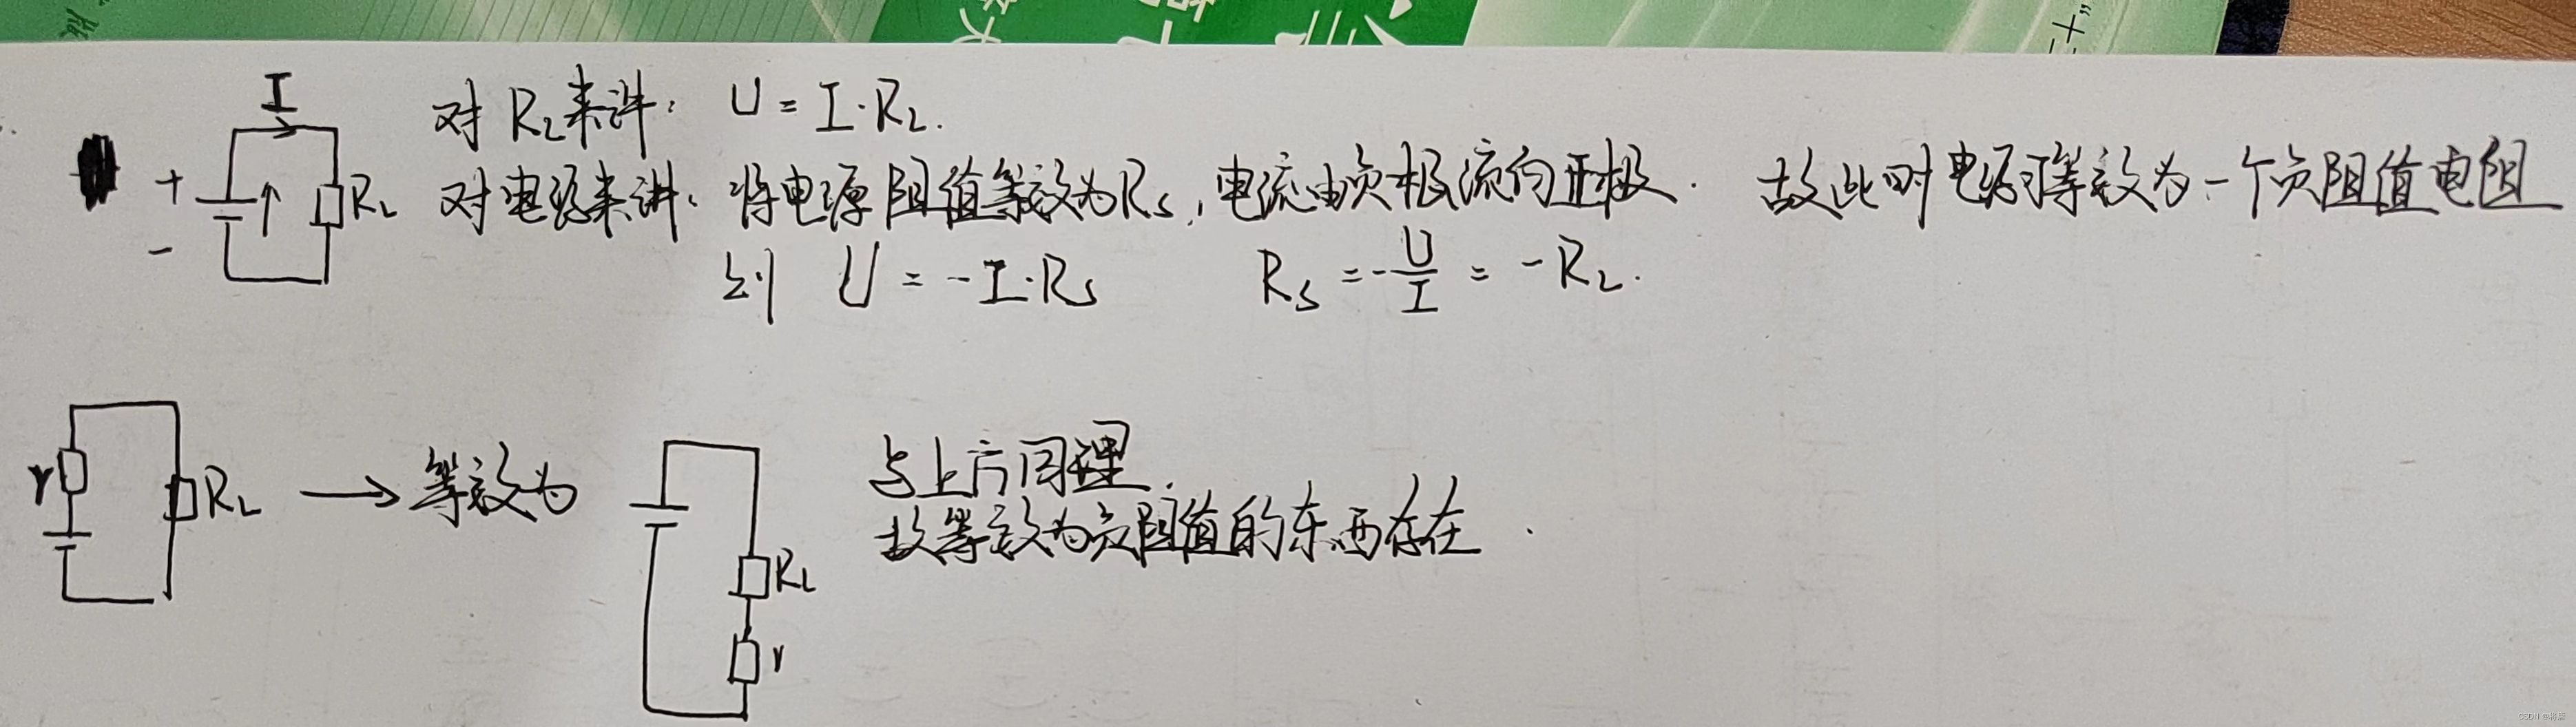 I
对 RL来讲: U = I·RL.
+
-
RL
对电源来讲: 将电源阻值等效为Rs, 电流由负极流向正极. 故此时电源可等效为一个负阻值电阻
则 U = -I·Rs Rs = -U/I = -RL.
r
RL
→ 等效为
RL
r
与上方同理.
故等效为负阻值的东西存在.